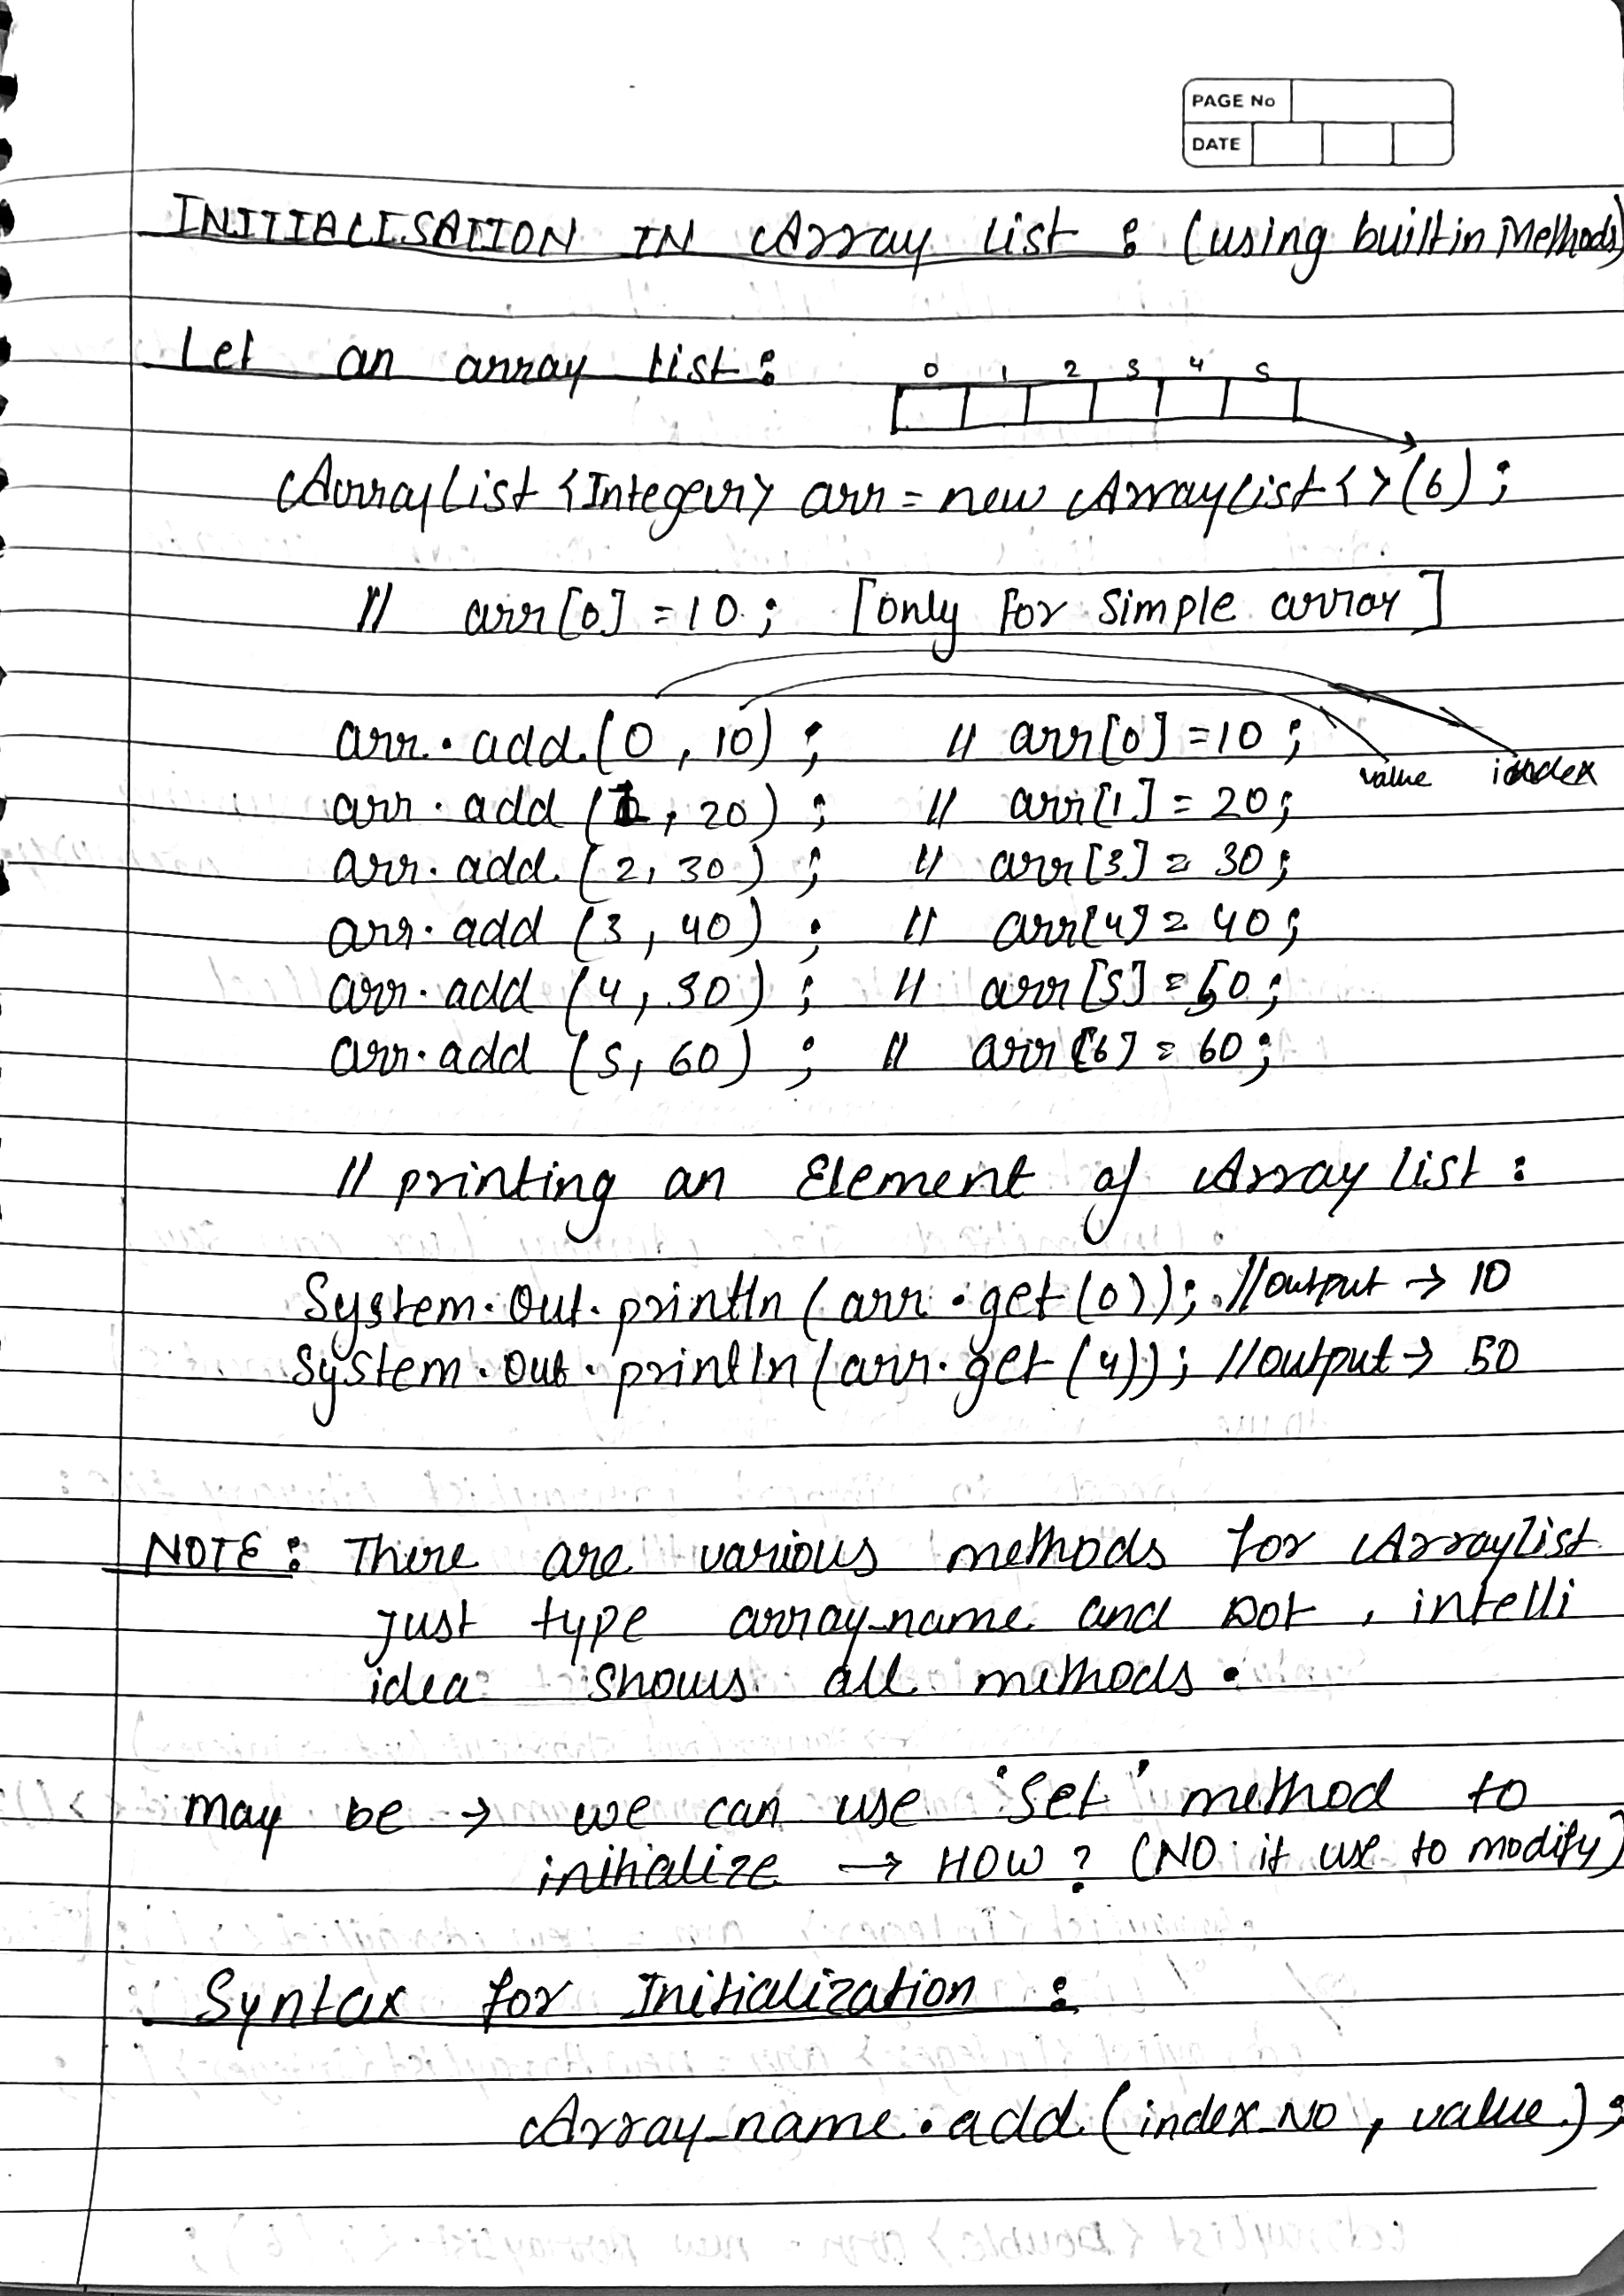 PAGE No
DATE
INITIALISATION IN Array List : (using builtin Methods)
Let an array list :
0 1 2 3 4 5
ArrayList <Integer> arr = new ArrayList < > (6) ;
// arr[0] = 10 ; [only For Simple array]
arr.add (0, 10) ; // arr[0] = 10 ;
value index
arr.add (1, 20) ; // arr[1] = 20 ;
arr.add (2, 30) ; // arr[3] = 30 ;
arr.add (3, 40) ; // arr[4] = 40 ;
arr.add (4, 50) ; // arr[5] = 50 ;
arr.add (5, 60) ; // arr[6] = 60 ;
// printing an Element of Array list :
System.Out.println (arr.get(0)); //output → 10
System.out.println (arr.get (4)); //output → 50
NOTE : There are various methods for Arraylist
Just type array_name and Dot , intelli
idea shows all methods .
may be → we can use 'Set' method to
initialize → HOW ? (NO it use to modify)
Syntax for Initialization :
Array_name.add (index_No , value) ;